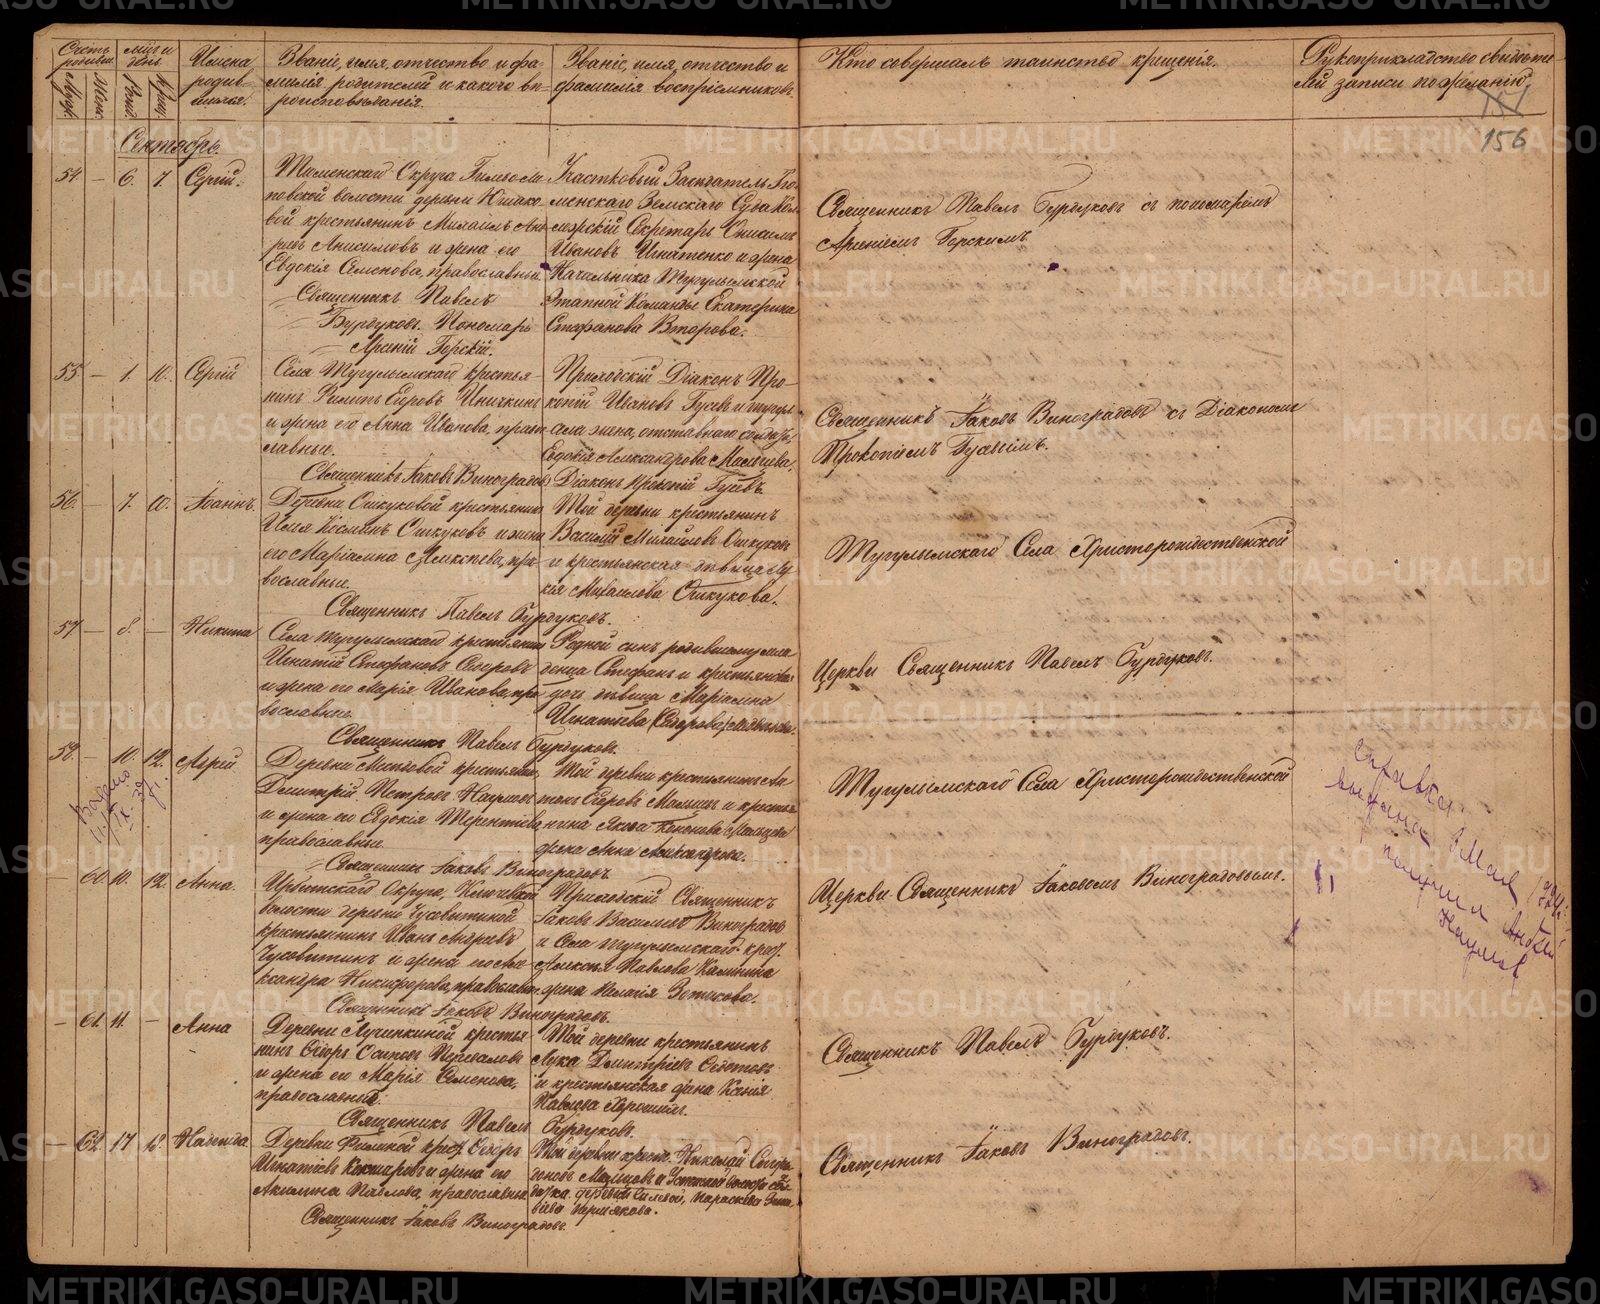 Счетъ родившихся
Муж.
Жен.
Мѣс. и день
Рожд.
Крещ.
Имена
родив-
шихся.
Званіе, имя, отчество и фа-
милія родителей и какого вѣ-
роисповѣданія.
Званіе, имя, отчество и
фамилія воспріемниковъ.
Кто совершалъ таинство крещенія.
Рукоприкладство свидѣте-
лей записи по желанію
151
156
Сентябрь.
54. — 6. 7. Сергій.
Тюменскаго Округа
волости деревни
вой крестьянинъ Михаилъ Анд-
реевъ Анисимовъ и жена его
Евдокія Семенова, православные
Священникъ Павелъ
Бурдуковъ. Пономарь
Арсеній Горскій.
Участковый Засѣдатель Тю-
менскаго Земскаго Суда Кол-
лежскій Секретарь Онисимъ
Ивановъ Игнатенко и жена
Начальника Тугулымской
Этапной Команды Екатерина
Стефанова Второва.
Священникъ Павелъ Бурдуковъ съ пономаремъ
Арсеніемъ Горскимъ
55 — 1. 10. Сергій
Села Тугулымскаго крестья-
нинъ Филипъ Егоровъ Иничкинъ
и жена его Анна Иванова, право-
славные.
Священникъ Іаковъ Виноградовъ
Приходскій Діаконъ Про-
копій Ивановъ Гусевъ и тугул.
села жена, отставнаго солдата,
Евдокія Александрова Мальцева.
Діаконъ Прокопій Гусевъ.
Священникъ Іаковъ Виноградовъ съ Діакономъ
Прокопіемъ Гусевымъ.
56. — 7. 10. Іоаннъ.
Деревни Ошкуковой крестьянинъ
Илья Космінъ Ошкуковъ и жена
его Маріамна Алексѣева, пра-
вославные.
Священникъ Павелъ Бурдуковъ.
Той деревни крестьянинъ
Василій Михайловъ Ошкуковъ
и крестьянская дѣвица Лу-
кія Михайлова Ошкукова.
Тугулымскаго Села Христорождественской
57 — 8. — Никита
Села Тугулымскаго крестьянинъ
Игнатій Стефановъ Сидоровъ
и жена его Марія Иванова, пра-
вославные.
Священникъ Павелъ Бурдуковъ.
Родной сынъ родившагося мла-
денца Стефанъ и крестьянская
дочь дѣвица Маріамна
Игнатьева Сидорова
Церкви Священникъ Павелъ Бурдуковъ.
58. — 10. 12. Андрей
Деревни крестьянинъ
Дмитрій Петровъ Наумовъ
и жена его Евдокія Терентіева
православные.
Священникъ Іаковъ Виноградовъ.
Той деревни крестьянинъ Ан-
тонъ Егоровъ Мальцевъ и крестья-
нина Якова Кононова Мальцева
жена Анна Александрова.
Тугулымскаго Села Христорождественской
— 60. 10. 12. Анна.
Ирбитскаго Округа, Ключевской
волости деревни Чусовитиной
крестьянинъ Иванъ Андреевъ
Чусовитинъ и жена его Але-
ксандра Никифорова, православн.
Священникъ Іаковъ Виноградовъ.
Приходскій Священникъ
Іаковъ Васильевъ Виноградовъ
и Села Тугулымскаго крест.
Алексѣя Павлова Калинина
жена Пелагія Зотикова.
Церкви Священникъ Іаковомъ Виноградовымъ.
— 61. 11. — Анна
Деревни Лучинкиной крестья-
нинъ Егоръ Осиповъ Переваловъ
и жена его Марія Семенова,
православные.
Священникъ Павелъ Бурдуковъ.
Той деревни крестьянинъ
Лука Дмитріевъ Федотовъ
и крестьянская жена Ксенія
Павлова Хорошихъ.
Священникъ Павелъ Бурдуковъ.
— 62. 17 18. Надежда
Деревни Филиной крест. Егоръ
Игнатіевъ Кокшаровъ и жена его
Акилина Павлова, православные
Священникъ Іаковъ Виноградовъ.
Той деревни крест. Николай
Мальцовъ и волости
деревни Параскева
Пермякова.
Священникъ Іаковъ Виноградовъ.
Справка
выдана Мая
получил Андрей
Наумов
METRIKI.GASO-URAL.RU